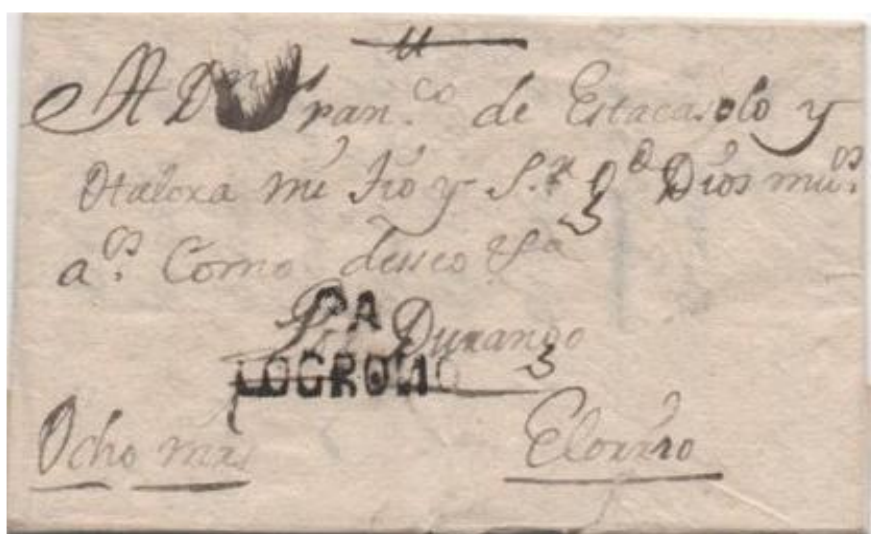 A Dn Fran.co de Estacasolo y
Otalora mi tio y S.r q.e Dios mu.s
a.s Como desseo
PA
Por Durango
LOGROÑO
Ocho mrs
Elorrio